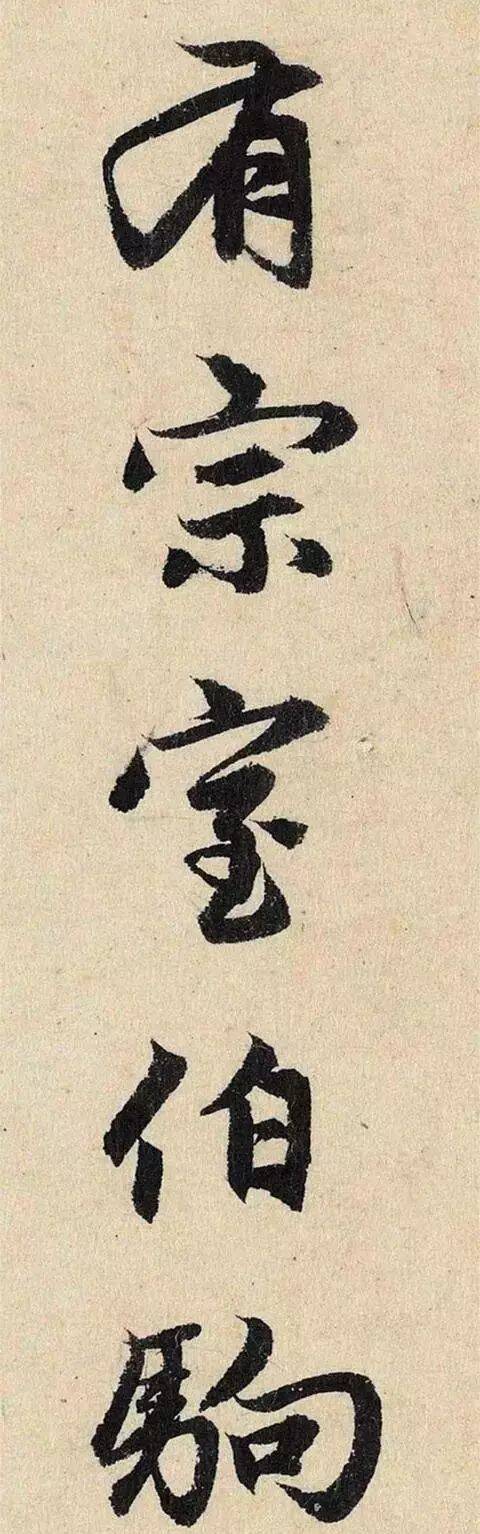 有宗室伯駒